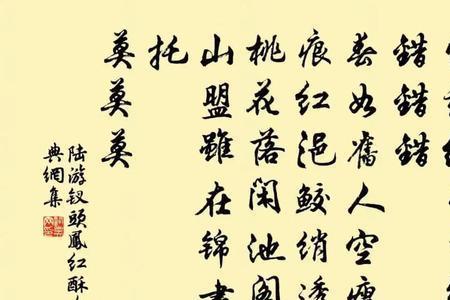 錯錯錯
春如舊人空瘦
痕紅浥鲛绡透
桃花落閑池閣
山盟雖在錦書
托
莫莫莫
陆游钗頭鳳紅酥
典網集